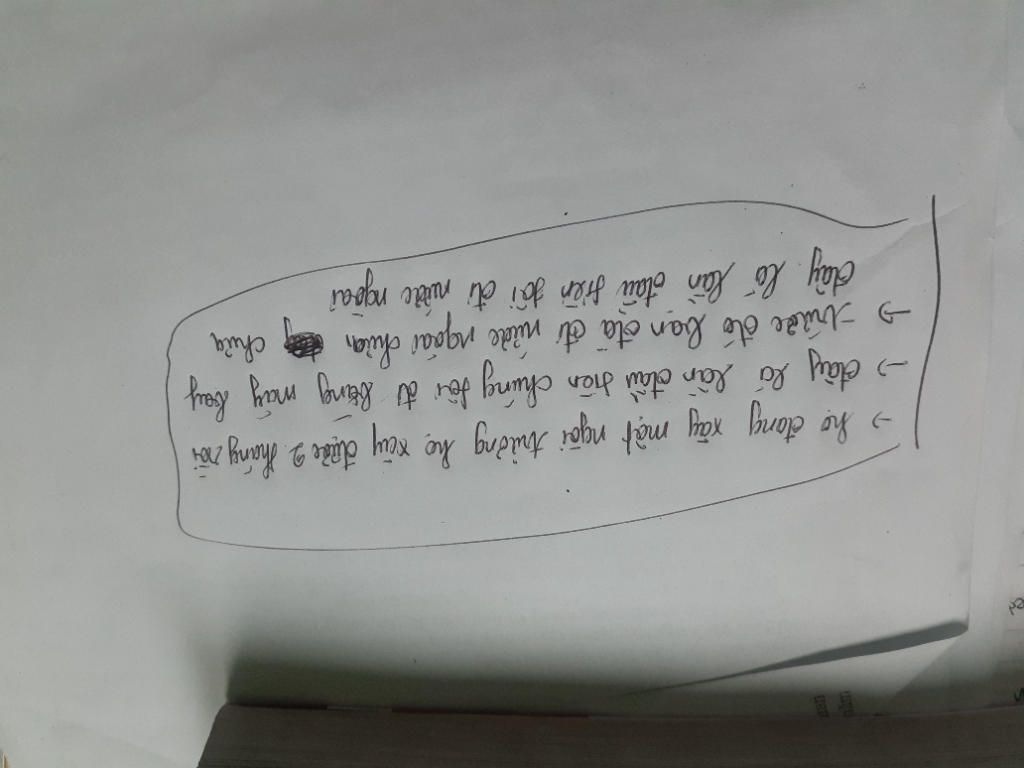 → họ đang xây một ngôi trường họ xây được 2 tháng rồi
→ đây là lần đầu tiên chúng tôi đi bằng máy bay
→ trước đó bạn đã đi nước ngoài chưa chưa
đây là lần đầu tiên tôi đi nước ngoài